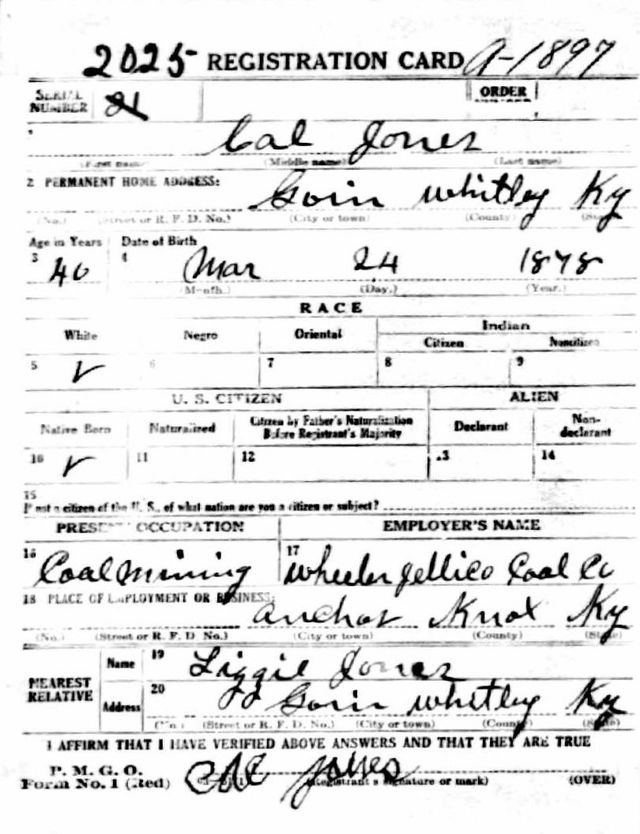 2025 REGISTRATION CARD A-1897
SERIAL NUMBER 21 ORDER
1 Cal Jones
(First name) (Middle name) (Last name)
2 PERMANENT HOME ADDRESS: Goin Whitley Ky
(No.) (Street or R. F. D. No.) (City or town) (County) (State)
Age in Years Date of Birth
3 40 4 Mar 24 1878
(Month.) (Day.) (Year.)
RACE
White Negro Oriental Indian
Citizen Noncitizen
5 ✓ 6 7 8 9
U. S. CITIZEN ALIEN
Native Born Naturalized Citizen by Father's Naturalization Before Registrant's Majority Declarant Non-declarant
10 ✓ 11 12 13 14
15
If not a citizen of the U. S., of what nation are you a citizen or subject?
PRESENT OCCUPATION EMPLOYER'S NAME
16 Coal Mining 17 Wheeler Jellico Coal Co
18 PLACE OF EMPLOYMENT OR BUSINESS:
Anchor Knox Ky
(No.) (Street or R. F. D. No.) (City or town) (County) (State)
NEAREST RELATIVE Name 19 Lizzie Jones
Address 20 Goin Whitley Ky
(No.) (Street or R. F. D. No.) (City or town) (County) (State)
I AFFIRM THAT I HAVE VERIFIED ABOVE ANSWERS AND THAT THEY ARE TRUE
P. M. G. O.
Form No. 1 (Red) Cal Jones (Registrant's signature or mark) (OVER)